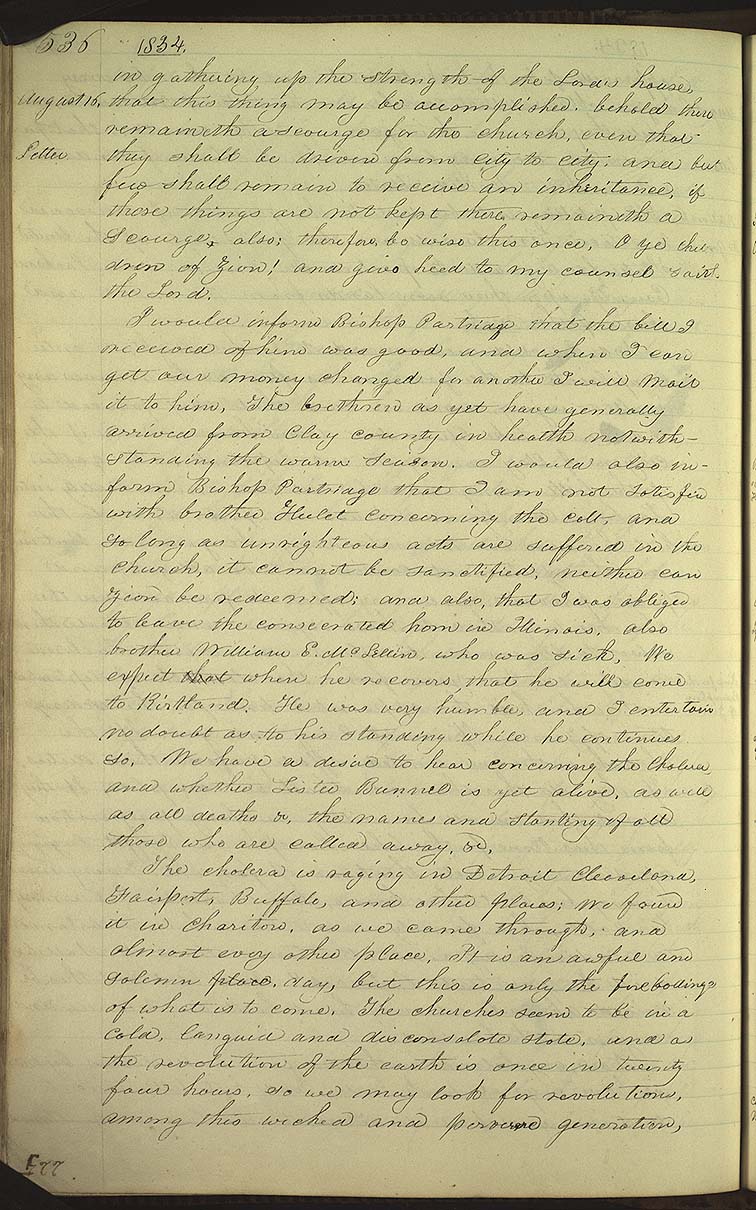 536 1834.
in gathering up the strength of the Lords house,
August 16, that this thing may be accomplished. behold there
remaineth a scourge for the church, even that
Letter. they shall be driven from city to city, and but
few shall remain to receive an inheritance, if
those things are not kept there remaineth a
scourge, also; therefore, be wise this once, O ye chil-
dren of Zion! and give heed to my counsel saith
the Lord.
I would inform Bishop Partridge that the bill I
received of him was good, and when I can
get our money changed for another I will mail
it to him, The brethren as yet have generally
arrived from Clay county in health notwith-
standing the warm season. I would also in-
form Bishop Partridge that I am not satisfied
with brother Hulet concerning the colt, and
so long as unrighteous acts are suffered in the
church, it cannot be sanctified, neither can
Zion be redeemed; and also, that I was obliged
to leave the consecrated horn in Illinois, also
brother William E. McLellin, who was sick, We
expect that when he recovers that he will come
to Kirtland. He was very humble, and I entertain
no doubt as to his standing while he continues
so, We have a desire to hear concerning the Cholera,
and whether Sister Bunnel is yet alive, as well
as all deaths &, the names and standing of all
those who are called away, &c,
The cholera is raging in Detroit Cleaveland,
Fairport, Buffalo, and other places; We found
it in Chariton, as we came through, and
almost every other place, It is an awful and
solemn place, day, but this is only the forebodings
of what is to come, The churches seem to be in a
cold, languid and disconsolate state, and as
the revolution of the earth is once in twenty
four hours, so we may look for revolutions,
among this wicked and perverse generation,
E 77